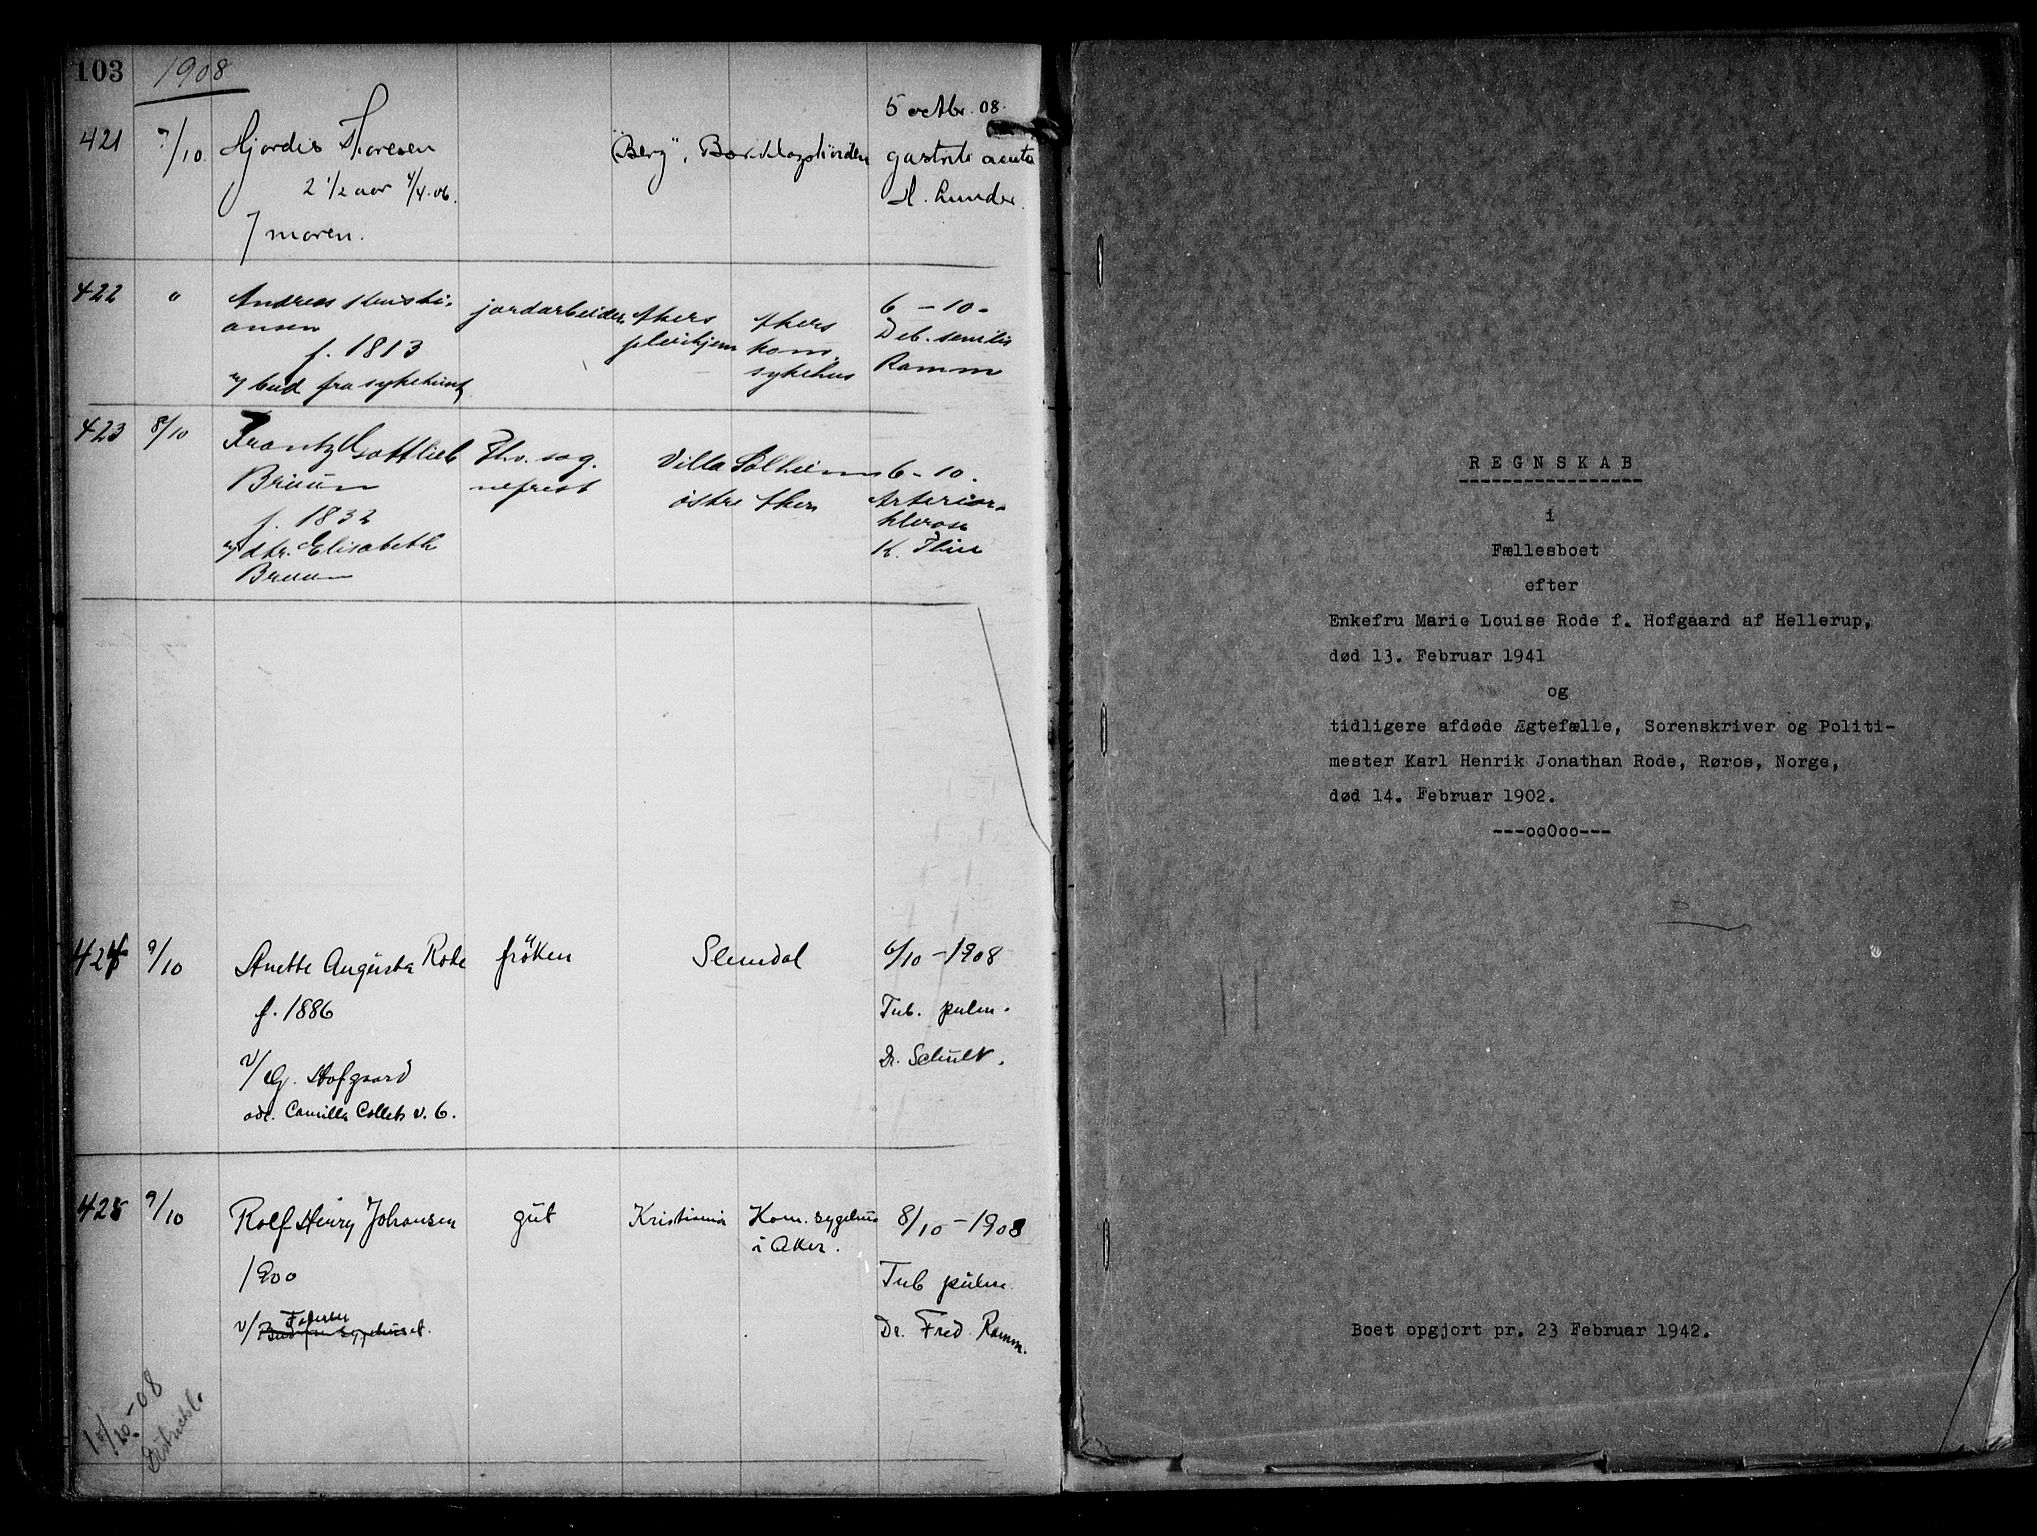 103
1908
421 7/10 Hjordis Thoresen "Berg", 5 octbr. 08.
gastrit. acuta
2 1/2 aar 4/4.06.
H. Lunder
v/ moren.
422 " Andreas Kristi-
ansen
f. 1813
v/ bud fra sykehuset
jordarbeider
Akers
pleiehjem
Akers
kom.
sykehus
6 - 10 -
Deb. senilis
Ramm
423 8/10 Frantz Gottlieb
Bruun
f. 1832
v/ dtr. Elisabeth
Bruun
Fhv. sog-
neprest
Villa Solheim
östre Aker
6 - 10.
Arterios-
klerose
K.
424 9/10 Anette Augusta Rode
f. 1886
v/ G. Hofgaard
adr. Camilla Colletts v. 6.
fröken
Slemdal
6/10 - 1908
Tub. pulm.
Dr.
425 9/10 Rolf Henry Johansen
1900
v/ Faderen
Bud fra sygehuset.
gut
Kristiania
Kom. sygehus
i Aker.
8/10 - 1908
Tub pulm.
Dr. Fred Ramm.
10/10 - 08
REGNSKAB
i
Fællesboet
efter
Enkefru Marie Louise Rode f. Hofgaard af Hellerup,
død 13. Februar 1941
og
tidligere afdøde Ægtefælle, Sorenskriver og Politi-
mester Karl Henrik Jonathan Rode, Røros, Norge,
død 14. Februar 1902.
---ooOoo---
Boet opgjort pr. 23 Februar 1942.